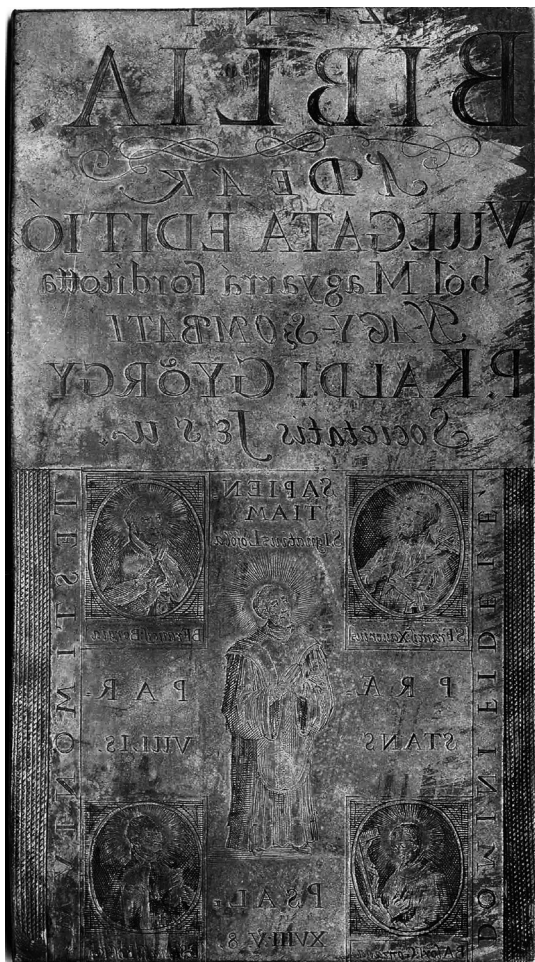 SZENT
BIBLIA.
A' DEÁK
VULGATA EDITIÓ
ból Magyarrá fordította
NAGY-SZOMBATI
P. KALDI. GYÖRGY
Societatis JESU.
SAPIEN
TIAM
S Ignatius Loiola
S Franc Xaverius
B Franc Borgia
PRÆ
STANS
PAR-
VULIS.
PSAL:
XVIII. V. 8.
DOMINI FIDELE
TESTIMONIUM